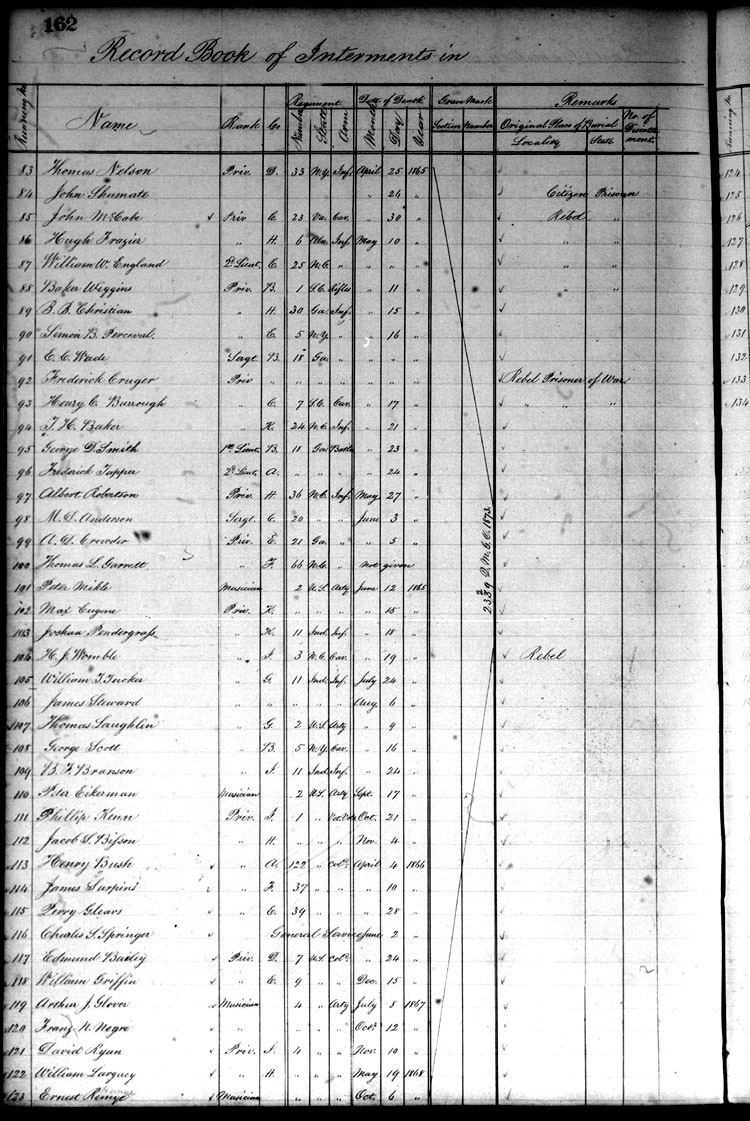 162
Record Book of Interments in
Running No. Name Rank Co. Regiment Date of Death Grave Mark Remarks
Number State Arm Month Day Year Section Number Original Place of Burial No. of Disinterment.
Locality State
83 Thomas Nelson Priv. D. 33 N.Y. Inf. April 25 1865
84 John Shumate " 26 " Citizen Prisoner
85 John McCabe Priv C. 23 Va. Cav. " 30 " Rebel "
86 Hugh Frazier " H. 6 Ala. Inf. May 10 " " "
87 William W. England 2d Lieut. C. 25 N.C. " " " "
88 Baker Wiggins Priv. B. 1 S.C. Rifles " 11 " " "
89 B. B. Christian " H. 30 Ga. Inf. " 15 " " "
90 Simon B. Perceval. " C. 5 N.Y. " " 16 " "
91 E. C. Wade Sergt. B. 18 Ga. " " " "
92 Frederick Cruger Priv " " " " " " " Rebel Prisoner of War
93 Henry C. Burrough C. 7 S.C. Cav. " 17 " " " "
94 J. H. Baker " K. 24 N.C. Inf. " 21 "
95 George D. Smith 1st Lieut. B. 18 Ga. Battn " 23 "
96 Frederick Tupper 2d Lieut. A. " " " " 24 "
97 Albert Robertson Priv. H. 36 N.C. Inf. May 27 "
98 M. D. Anderson Sergt. C. 20 " " June 3 "
99 A. D. Crowder Priv. E. 21 Ga. " " 5 "
100 Thomas L. Garrett " F. 66 N.C. " not given
101 Peter Mikle Musician 2 U.S. Arty June 12 1865
102 Max Eugene Priv. K. " " " " 15 "
103 Joshua Pendergrass " K. 11 Ind. Inf. " 18 "
104 H. J. Womble " I. 3 N.C. Cav. " 19 " Rebel
105 William T. Tucker " G. 11 Ind. Inf. July 24 "
106 James Steward " " " " " Aug. 6 "
107 Thomas Laughlin " G. 2 U.S. Arty " 9 "
108 George Scott " B. 5 N.Y. Cav. " 16 "
109 B. F. Branson " I. 11 Ind. Inf. " 24 "
110 Peter Eikerman Musician 2 U.S. Arty Sept. 17 "
111 Phillip Kenn Priv. I. 1 " Vet. Vols Oct. 21 "
112 Jacob S. Bisson " H. " " " Nov. 4 "
113 Henry Bush " A. 122 " Cold. April 4 1866
114 James Surpins " F. 37 " " " 10 "
115 Perry Gleavs " E. 39 " " " 28 "
116 Charles S. Springer General Service June 2 "
117 Edmund Baxley Priv. D. 7 U.S. Cold. " 24 "
118 William Griffin " E. 9 " " Dec. 15 "
119 Arthur J. Glover Musician " 4 " Arty July 8 1867
120 Franz N. Negre " " " " Octr. 12 "
121 David Ryan Priv. I. 4 " " Nov. 10 "
122 William Larguey " H. " " " May 19 1868
123 Ernest Remye Musician " " " Oct. 6 "
D. M. G. O. 1873.
Running No.
124
125
126
127
128
129
130
131
132
133
134